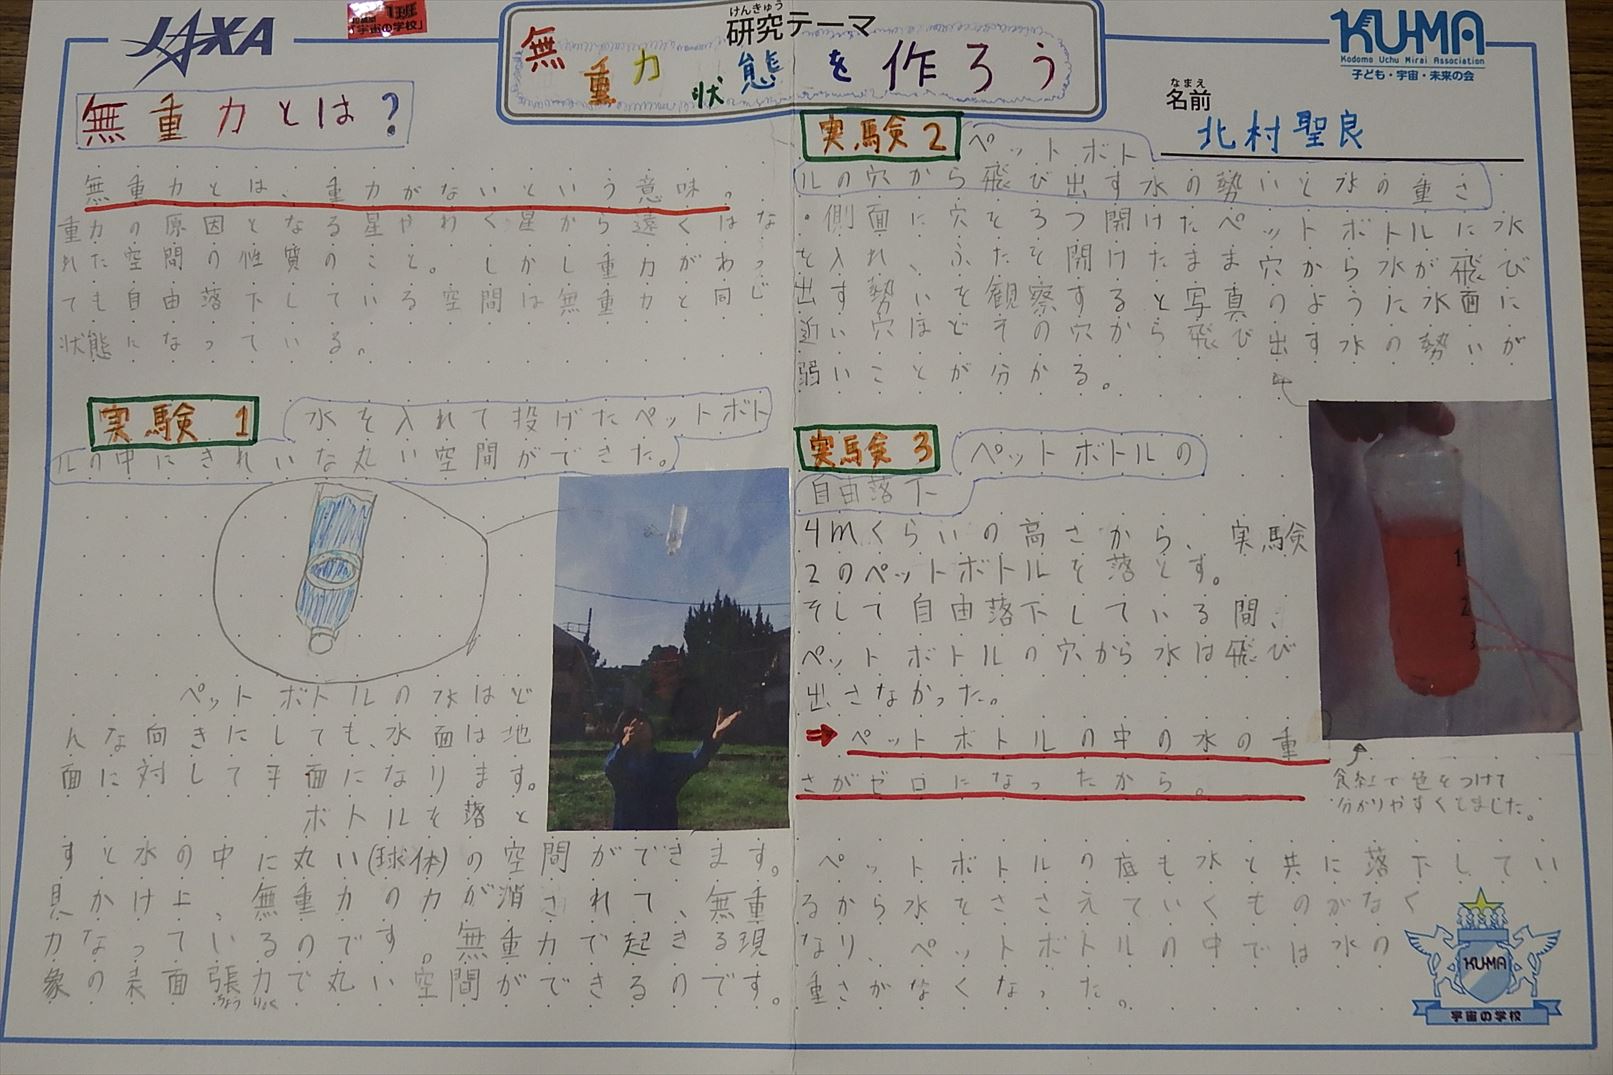 JAXA
1班
「宇宙の学校」
けんきゅう
研究テーマ
無重力状態を作ろう
KU-MA
Kodomo Uchu Mirai Association
子ども・宇宙・未来の会
なまえ
名前
北村聖良
無重力とは？
無重力とは、重力がないという意味。
重力の原因となる星やわく星から遠くはな
れた空間の性質のこと。しかし重力があっ
ても自由落下している空間は無重力と同じ
状態になっている。
実験1
水を入れて投げたペットボト
ルの中にきれいな丸い空間ができた。
ペットボトルの水はど
んな向きにしても、水面は地
面に対して平面になります。
ボトルを落と
すと水の中に丸い(球体)の空間ができます。
見かけ上、無重力の力が消されて、無重
力なっているのです。無重力で起きる現
象の表面張力で丸い空間ができるのです。
ちょう りょく
実験2
ペットボト
ルの穴から飛び出す水の勢いと水の重さ
・側面に穴を3つ開けたペットボトルに水
を入れ、ふたを開けたまま穴から水が飛び
出す勢いを観察すると写真のように水面に
近い穴ほどその穴から飛び出す水の勢いが
弱いことが分かる。
実験3
ペットボトルの
自由落下
4mくらいの高さから、実験
2のペットボトルを落とす。
そして自由落下している間、
ペットボトルの穴から水は飛び
出さなかった。
➡ペットボトルの中の水の重
さがゼロになったから。
1
2
3
食紅で色をつけて
分かりやすくしました。
ペットボトルの底も水と共に落下してい
るから水をささえていくものがなく
なり、ペットボトルの中では水の
重さがなくなった。
KU-MA
宇宙の学校